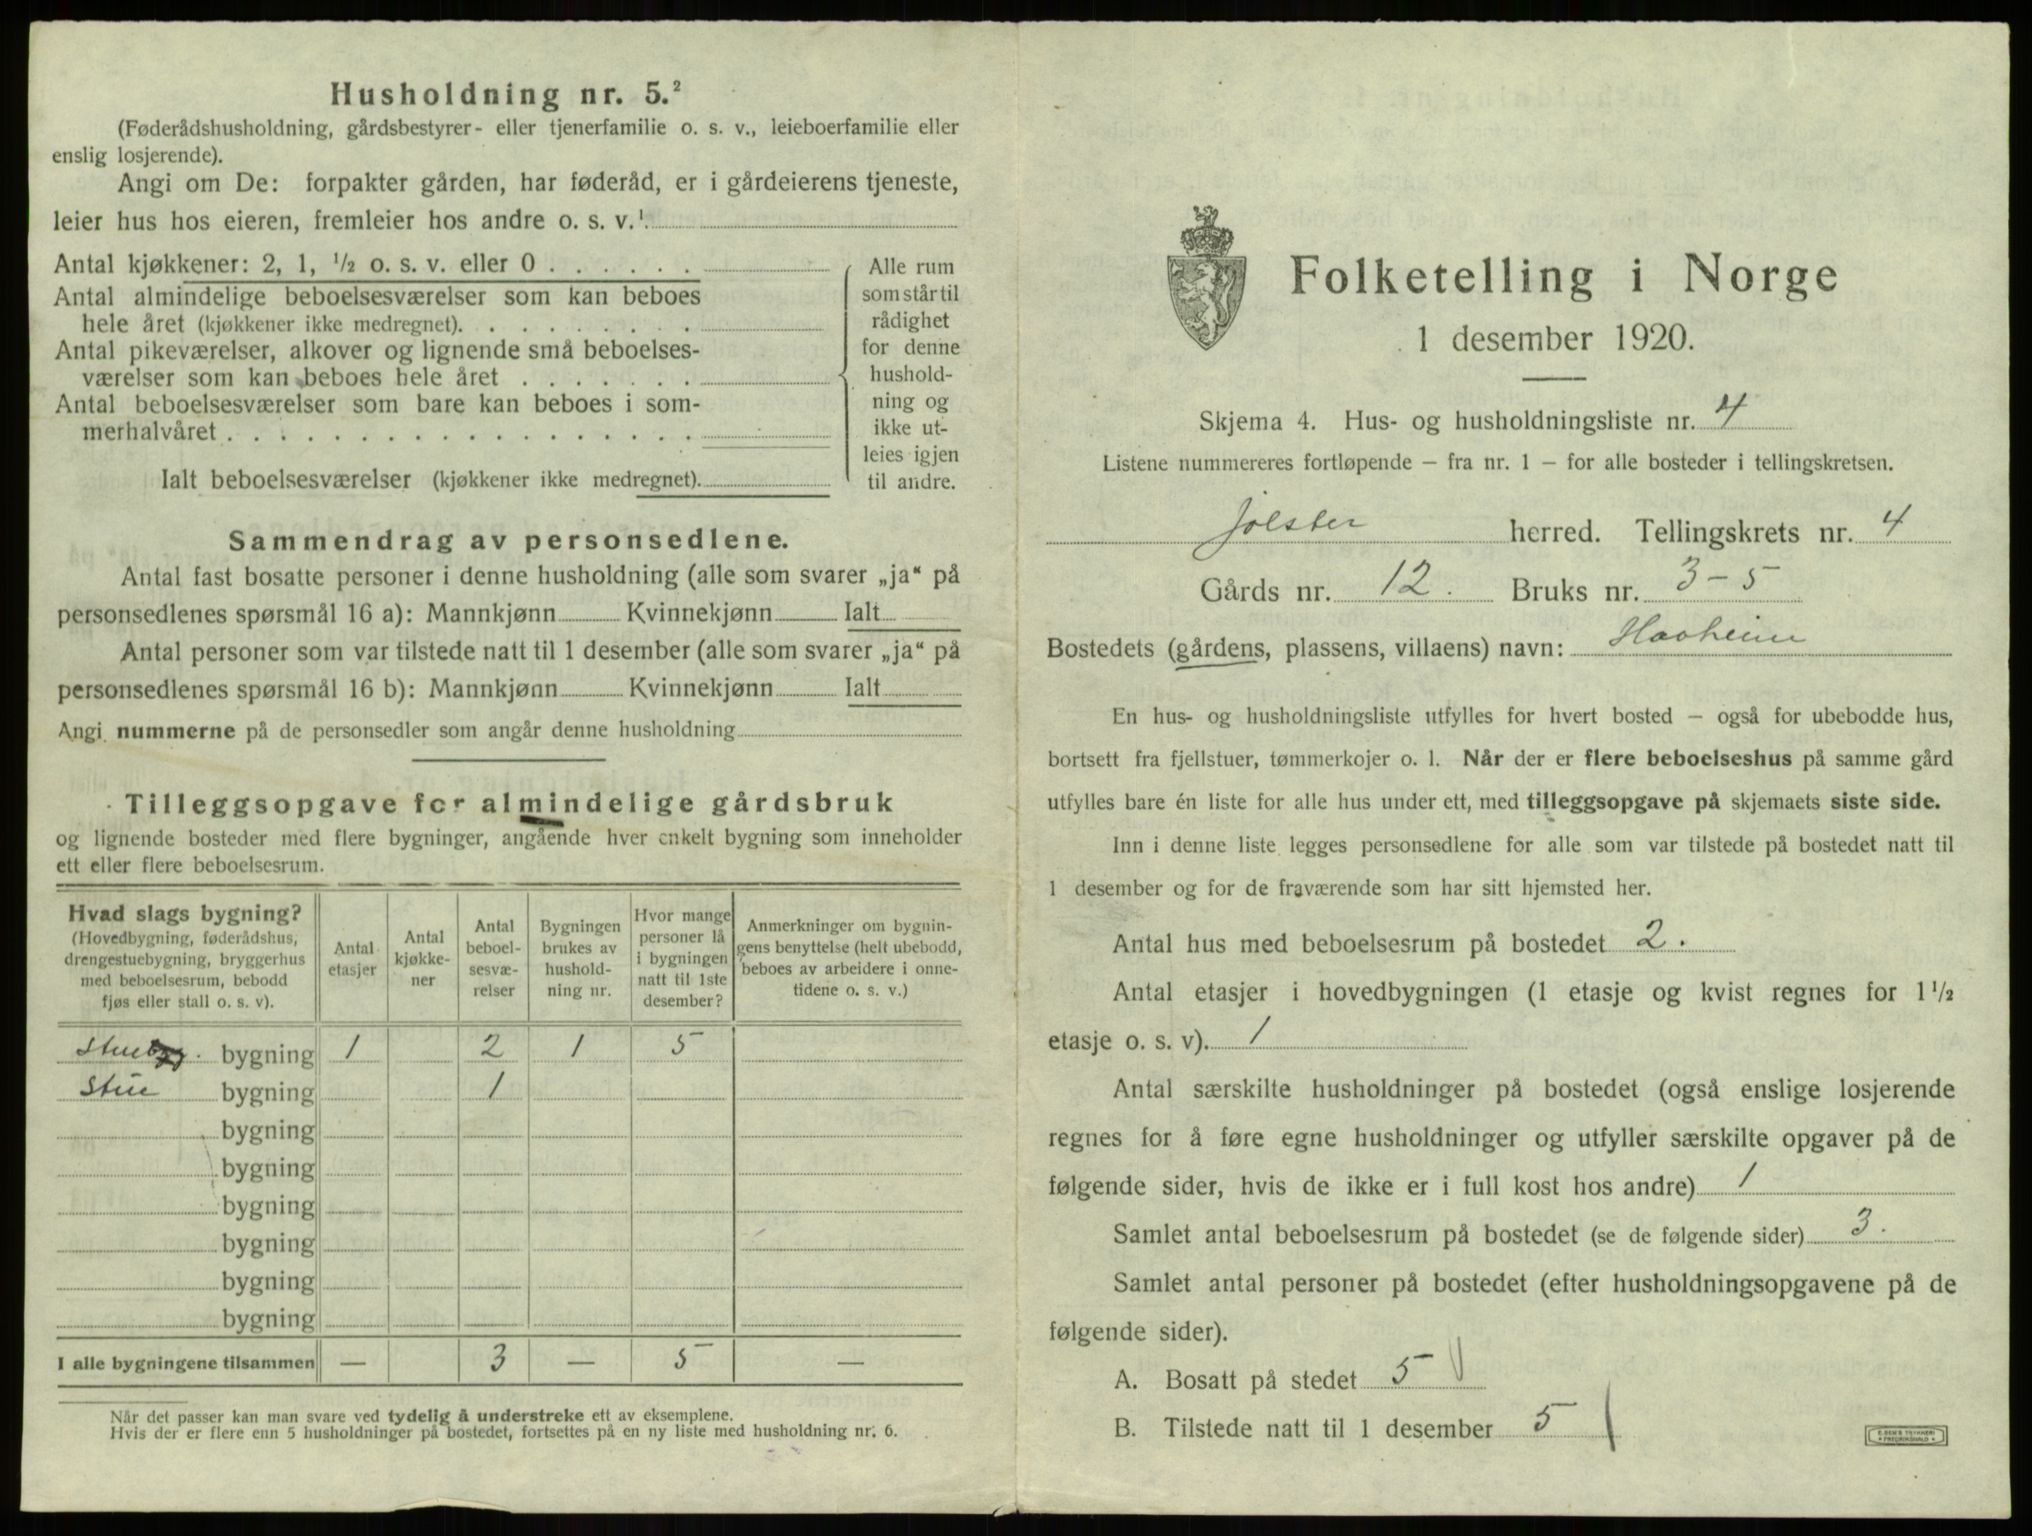 Husholdning nr. 5.²
(Føderådshusholdning, gårdsbestyrer- eller tjenerfamilie o. s. v., leieboerfamilie eller
enslig losjerende).
Angi om De: forpakter gården, har føderåd, er i gårdeierens tjeneste,
leier hus hos eieren, fremleier hos andre o. s. v.¹
Antal kjøkkener: 2, 1, ½ o. s. v. eller 0 . . . . . .
Antal almindelige beboelsesværelser som kan beboes
hele året (kjøkkener ikke medregnet). . . . . . . . .
Antal pikeværelser, alkover og lignende små beboelses-
værelser som kan beboes hele året . . . . . . .
Antal beboelsesværelser som bare kan beboes i som-
merhalvåret . . . . . . . . . . . . . . . . .
Ialt beboelsesværelser (kjøkkener ikke medregnet).
Alle rum
som står til
rådighet
for denne
hushold-
ning og
ikke ut-
leies igjen
til andre.
Sammendrag av personsedlene.
Antal fast bosatte personer i denne husholdning (alle som svarer „ja“ på
personsedlenes spørsmål 16 a): Mannkjønn Kvinnekjønn Ialt
Antal personer som var tilstede natt til 1 desember (alle som svarer „ja“ på
personsedlenes spørsmål 16 b): Mannkjønn Kvinnekjønn Ialt
Angi nummerne på de personsedler som angår denne husholdning
Tilleggsopgave for almindelige gårdsbruk
og lignende bosteder med flere bygninger, angående hver enkelt bygning som inneholder
ett eller flere beboelsesrum.
Hvad slags bygning?
(Hovedbygning, føderådshus,
drengestuebygning, bryggerhus
med beboelsesrum, bebodd
fjøs eller stall o. s. v).
Antal
etasjer
Antal
kjøkke-
ner
Antal
beboel-
sesvæ-
relser
Bygningen
brukes av
hushold-
ning nr.
Hvor mange
personer lå
i bygningen
natt til 1ste
desember?
Anmerkninger om bygnin-
gens benyttelse (helt ubebodd,
beboes av arbeidere i onne-
tidene o. s. v.)
Stuebyg. bygning 1 2 1 5
Stue bygning 1
bygning
bygning
bygning
bygning
bygning
bygning
I alle bygningene tilsammen — 3 — 5 —
Når det passer kan man svare ved tydelig å understreke ett av eksemplene.
Hvis der er flere enn 5 husholdninger på bostedet, fortsettes på en ny liste med husholdning nr. 6.
Folketelling i Norge
1 desember 1920.
Skjema 4. Hus- og husholdningsliste nr. 4
Listene nummereres fortløpende – fra nr. 1 – for alle bosteder i tellingskretsen.
Jølster herred. Tellingskrets nr. 4
Gårds nr. 12. Bruks nr. 3-5
Bostedets (gårdens, plassens, villaens) navn: Haaheim
En hus- og husholdningsliste utfylles for hvert bosted – også for ubebodde hus,
bortsett fra fjellstuer, tømmerkojer o. l. Når der er flere beboelseshus på samme gård
utfylles bare én liste for alle hus under ett, med tilleggsopgave på skjemaets siste side.
Inn i denne liste legges personsedlene for alle som var tilstede på bostedet natt til
1 desember og for de fraværende som har sitt hjemsted her.
Antal hus med beboelsesrum på bostedet 2.
Antal etasjer i hovedbygningen (1 etasje og kvist regnes for 1 ½
etasje o. s. v). 1
Antal særskilte husholdninger på bostedet (også enslige losjerende
regnes for å føre egne husholdninger og utfyller særskilte opgaver på de
følgende sider, hvis de ikke er i full kost hos andre) 1
Samlet antal beboelsesrum på bostedet (se de følgende sider) 3.
Samlet antal personer på bostedet (efter husholdningsopgavene på de
følgende sider).
A. Bosatt på stedet 5
B. Tilstede natt til 1 desember 5